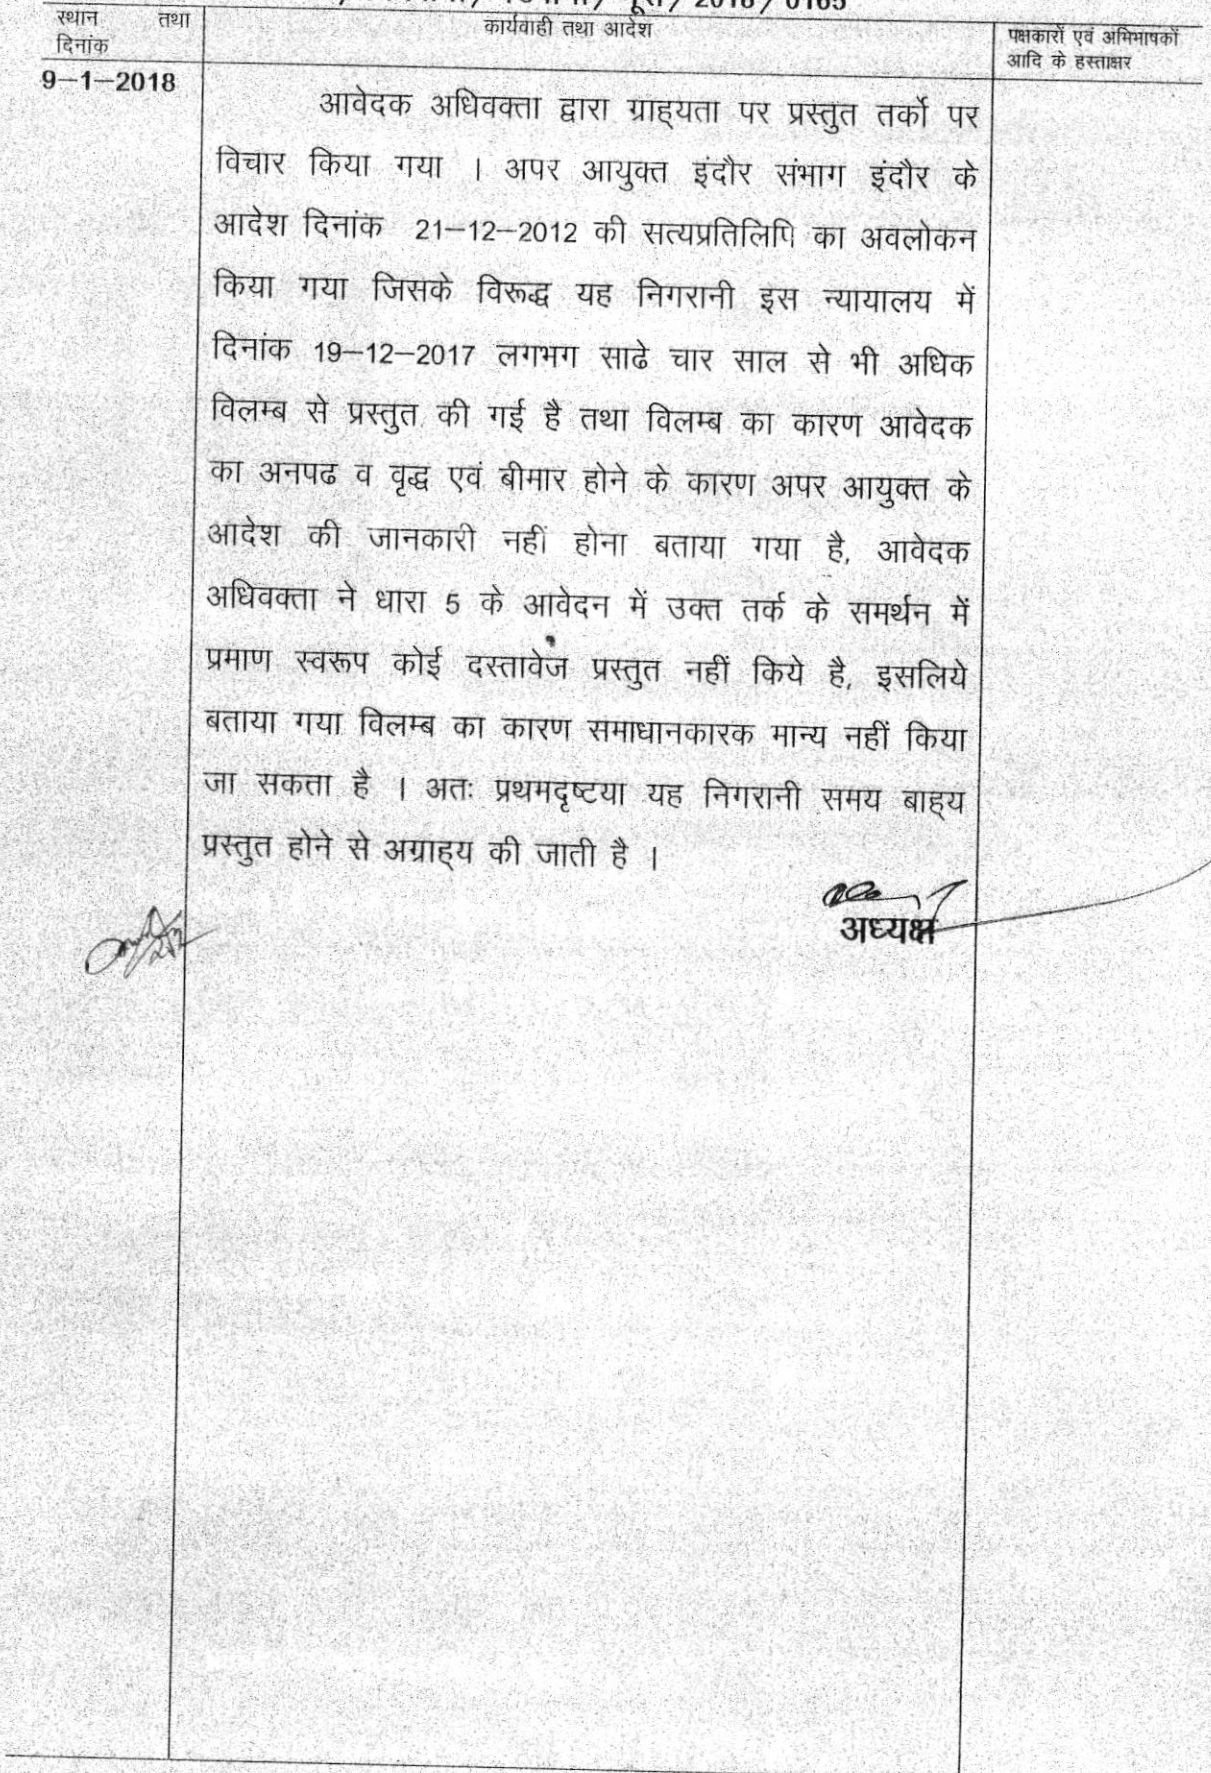 2018/0165
स्थान तथा
दिनांक
कार्यवाही तथा आदेश
पक्षकारों एवं अभिभाषकों
आदि के हस्ताक्षर
9–1–2018
आवेदक अधिवक्ता द्वारा ग्राह्यता पर प्रस्तुत तर्को पर
विचार किया गया । अपर आयुक्त इंदौर संभाग इंदौर के
आदेश दिनांक 21–12–2012 की सत्यप्रतिलिपि का अवलोकन
किया गया जिसके विरूद्ध यह निगरानी इस न्यायालय में
दिनांक 19–12–2017 लगभग साढे चार साल से भी अधिक
विलम्ब से प्रस्तुत की गई है तथा विलम्ब का कारण आवेदक
का अनपढ व वृद्ध एवं बीमार होने के कारण अपर आयुक्त के
आदेश की जानकारी नहीं होना बताया गया है, आवेदक
अधिवक्ता ने धारा 5 के आवेदन में उक्त तर्क के समर्थन में
प्रमाण स्वरूप कोई दस्तावेज प्रस्तुत नहीं किये है, इसलिये
बताया गया विलम्ब का कारण समाधानकारक मान्य नहीं किया
जा सकता है । अतः प्रथमदृष्टया यह निगरानी समय बाह्य
प्रस्तुत होने से अग्राह्य की जाती है ।
अध्यक्ष